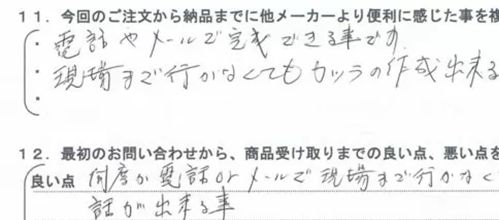 11. 今回のご注文から納品までに他メーカーより便利に感じた事を複
・電話やメールで完成できる事です
・現場まで行かなくてもカツラの作成出来る
・
12. 最初のお問い合わせから、商品受け取りまでの良い点、悪い点を
良い点 何度か電話orメールで現場まで行かなく
話が出来る事